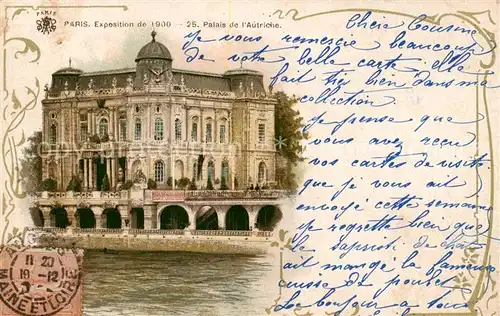 PARIS
PARIS. Exposition de 1900 - 25. Palais de l'Autriche.
Chère Cousine
Je vous remercie beaucoup
de votre belle carte elle
fait très bien dans ma
collection.
Je pense que
vous avez reçu
vos cartes de visite
que je vous ait
envoyé cette semaine
je regrette bien que
le sapristi de chat
ait mangé la fameuse
cuisse de poulet
Le bonjour a tous
11 20
19-12
MAINE ET LOIRE